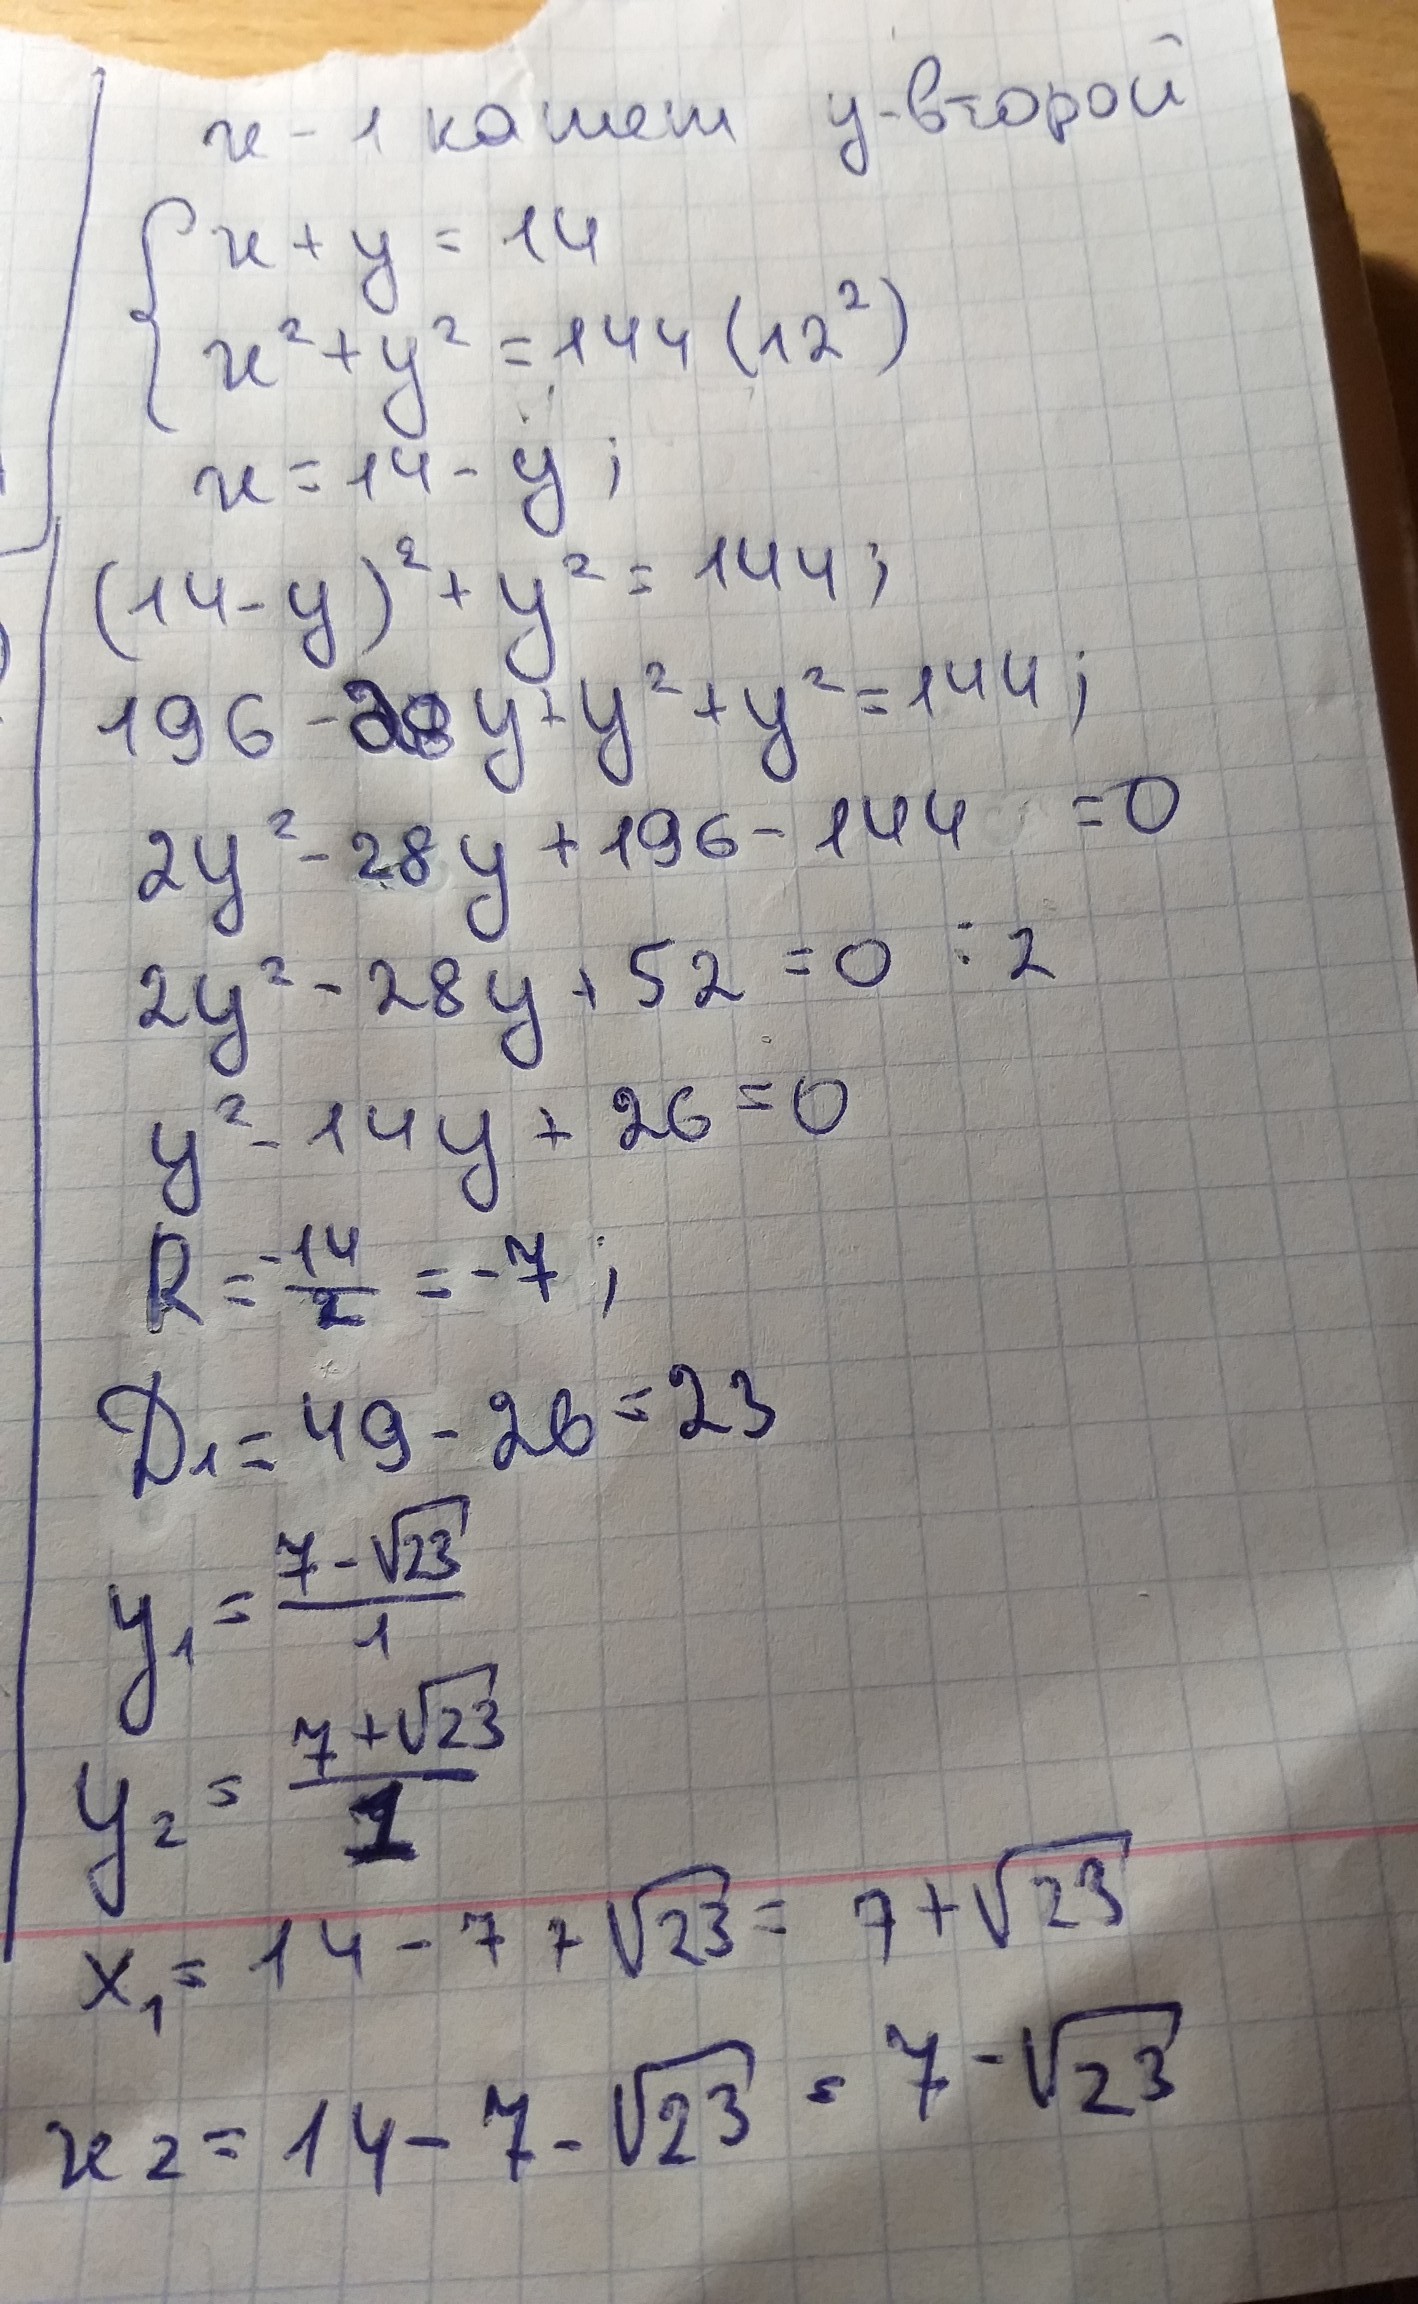 x - 1 катет y - второй
x + y = 14
x² + y² = 144 (12²)
x = 14 - y ;
(14 - y)² + y² = 144 ;
196 - 28y + y² + y² = 144 ;
2y² - 28y + 196 - 144 = 0
2y² - 28y + 52 = 0 : 2
y² - 14y + 26 = 0
R = -14/2 = -7 ;
D₁ = 49 - 26 = 23
y₁ = (7 - √23)/1
y₂ = (7 + √23)/1
x₁ = 14 - 7 + √23 = 7 + √23
x₂ = 14 - 7 - √23 = 7 - √23